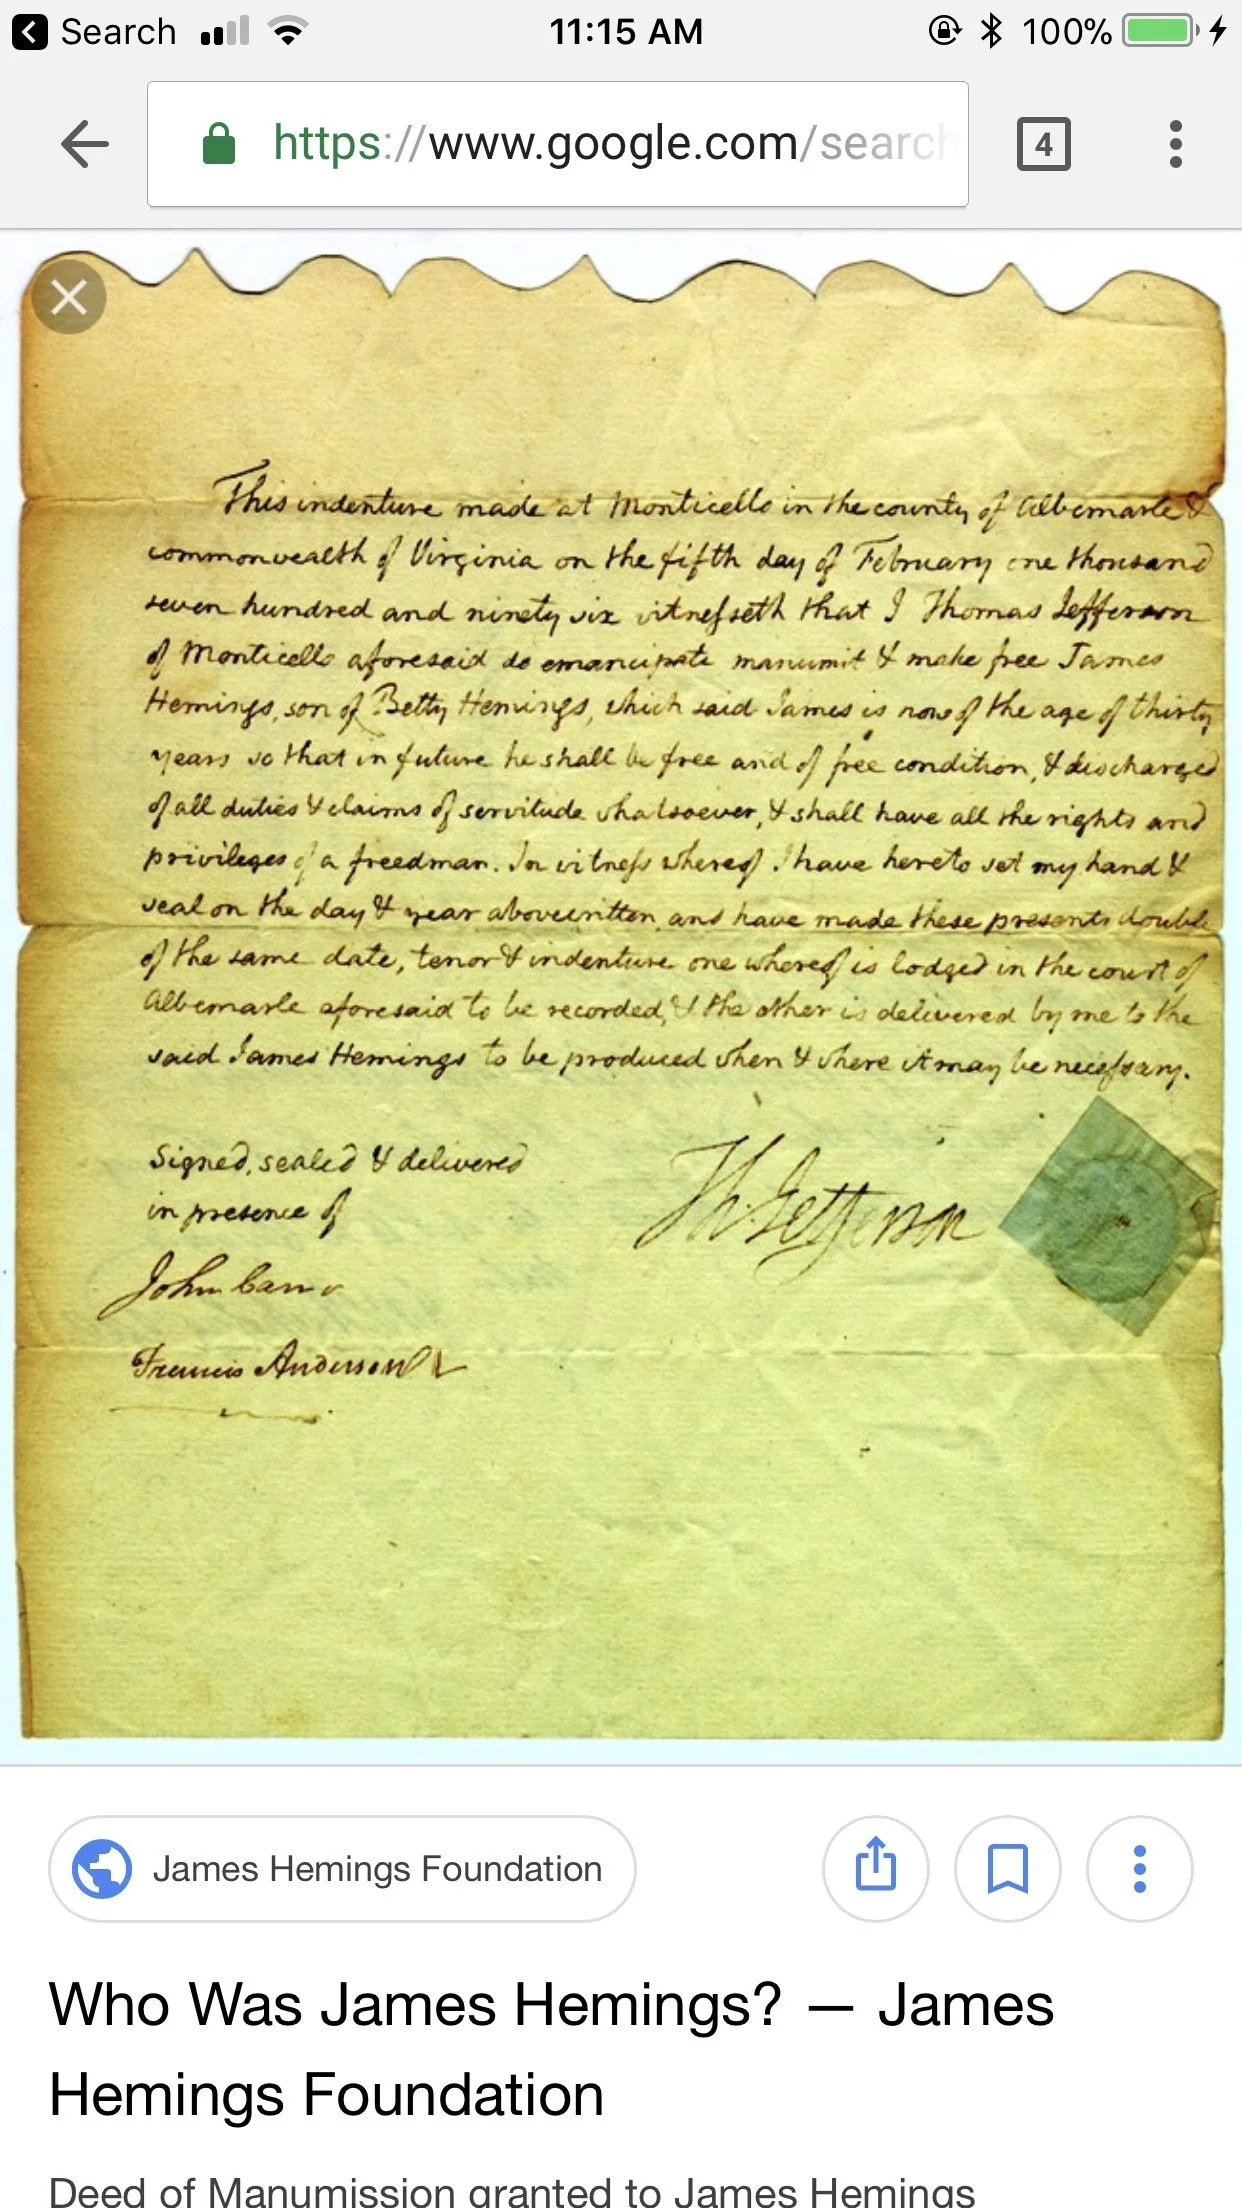 Search
11:15 AM
100%
https://www.google.com/search
4
This indenture made at Monticello in the county of Albemarle &
commonwealth of Virginia on the fifth day of February one thousand
seven hundred and ninety six witnesseth that I Thomas Jefferson
of Monticello aforesaid do emancipate manumit & make free James
Hemings, son of Betty Hemings, which said James is now of the age of thirty
years so that in future he shall be free and of free condition, & discharged
of all duties & claims of servitude whatsoever, & shall have all the rights and
privileges of a freedman. In witness whereof I have hereto set my hand &
seal on the day & year abovewritten, and have made these presents double
of the same date, tenor & indenture one whereof is lodged in the court of
Albemarle aforesaid to be recorded, & the other is delivered by me to the
said James Hemings to be produced when & where it may be necessary.
Signed, sealed & delivered
in presence of
Th: Jefferson
John Carr
Francis Anderson
James Hemings Foundation
Who Was James Hemings? — James
Hemings Foundation
Deed of Manumission granted to James Hemings